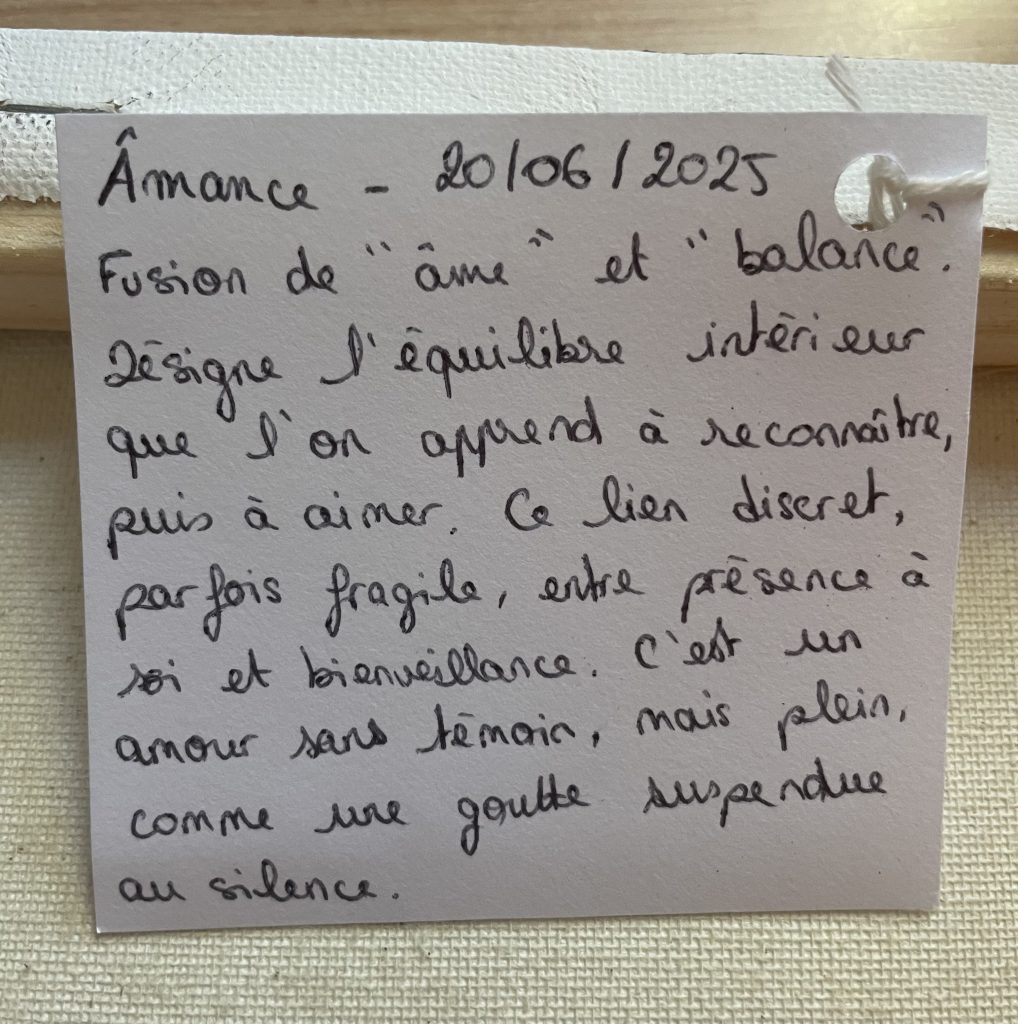 Âmance - 20/06/2025
Fusion de "âme" et "balance".
Désigne l'équilibre intérieur
que l'on apprend à reconnaître,
puis à aimer. Ce lien discret,
parfois fragile, entre présence à
soi et bienveillance. C'est un
amour sans témoin, mais plein,
comme une goutte suspendue
au silence.